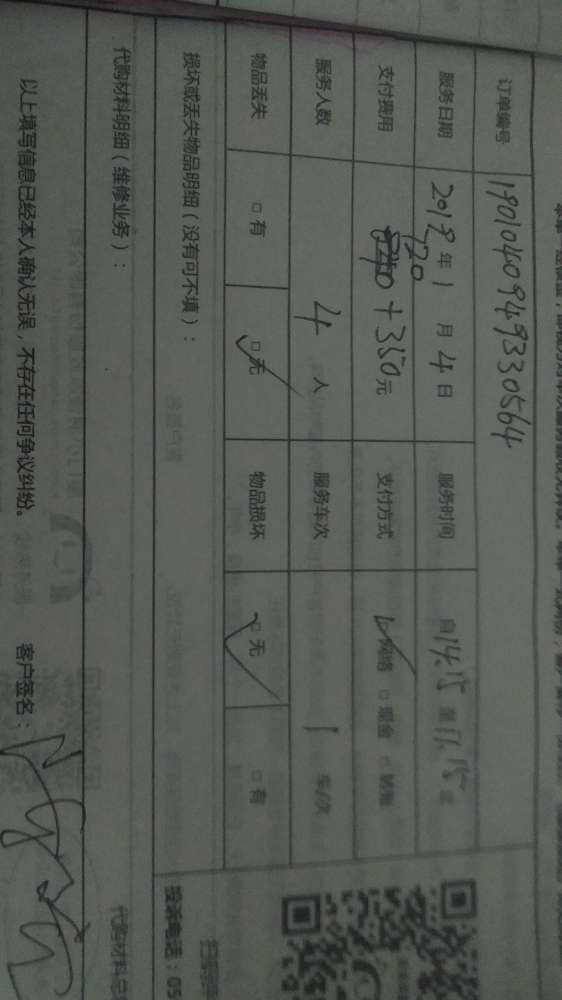 订单编号 1901040949330564
服务日期 2019年1月4日 服务时间 自14:15至17:15止
支付费用 720+350元 支付方式 □网络 □现金 □转账
服务人数 4人 服务车次 1车/次
物品丢失 □有 □无 物品损坏 □无 □有
损坏或丢失物品明细（没有可不填）：
投诉电话：05
代购材料明细（维修业务）：
代购材料总
以上填写信息已经本人确认无误，不存在任何争议纠纷。 客户签名：